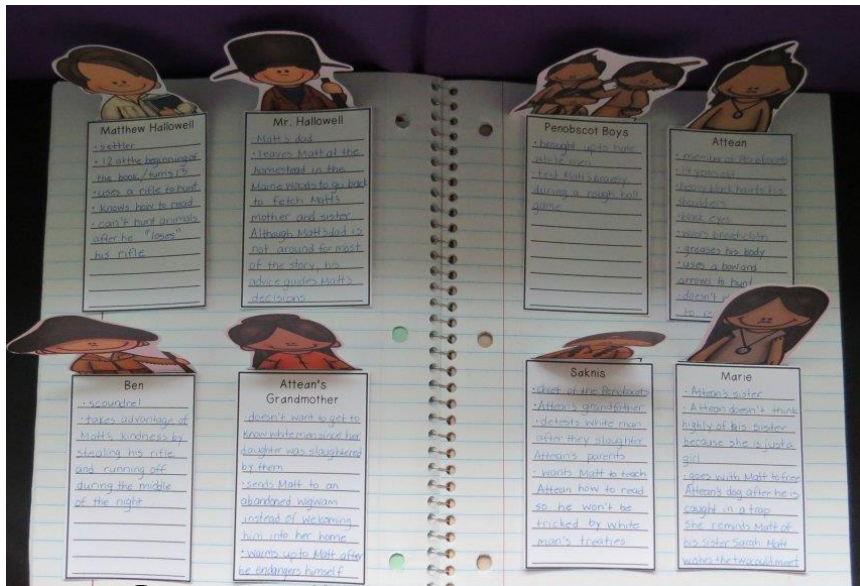 Matthew Hallowell
- settler
- 12 at the beginning of
the book/turns 13
- uses a rifle to hunt
- knows how to read
- can't hunt animals
after he "loses"
his rifle
Mr. Hallowell
- Matt's dad
- leaves Matt at the
homestead in the
Maine woods to go back
to fetch Matt's
mother and sister
Although Matt's dad is
not around for most
of the story, his
advice guides Matt's
decisions
Penobscot Boys
- brought up to hate
white men
- test Matt's bravery
during a rough ball
game
Attean
- member of Penobscots
- 14 years old
- heavy black hair to his
shoulders
- black eyes
- wears breechcloth
- greases his body
- uses a bow and
arrows to hunt
- doesn't
to
Ben
- scoundrel
- takes advantage of
Matt's kindness by
stealing his rifle
and running off
during the middle
of the night
Attean's
Grandmother
- doesn't want to get to
know white men since her
daughter was slaughtered
by them
- sends Matt to an
abandoned wigwam
instead of welcoming
him into her home
- warms up to Matt after
he endangers himself
Saknis
- chief of the Penobscots
- Attean's grandfather
- detests white man
after they slaughter
Attean's parents
- wants Matt to teach
Attean how to read
so he won't be
tricked by white
man's treaties
Marie
- Attean's sister
- Attean doesn't think
highly of his sister
because she is just a
girl
- goes with Matt to free
Attean's dog after he is
caught in a trap
She reminds Matt of
his sister Sarah. Matt
wishes the two could meet